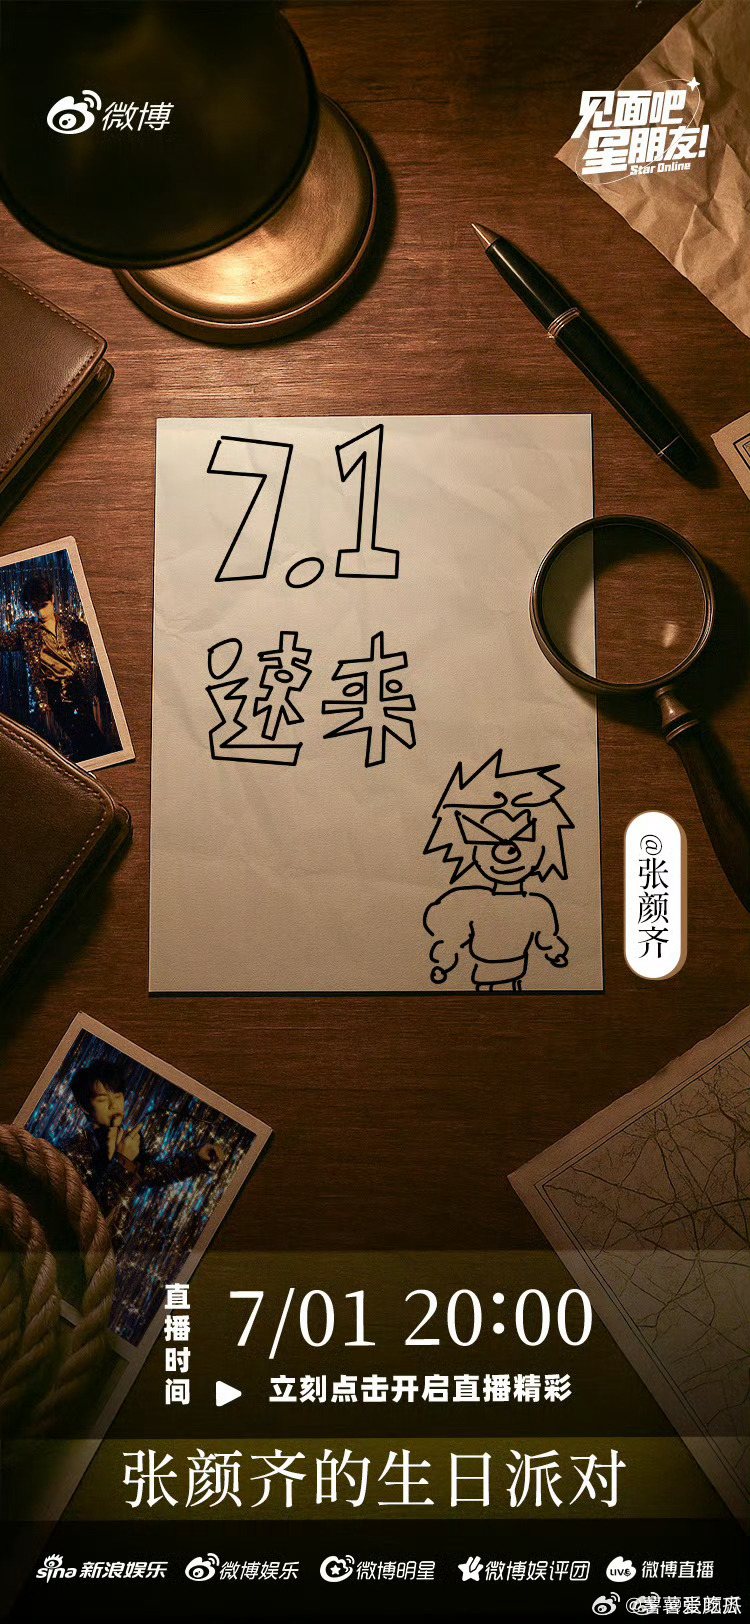 微博
见面吧
星朋友!
Star Online
7.1
速来
@张颜齐
直播时间
7/01 20:00
立刻点击开启直播精彩
张颜齐的生日派对
sina 新浪娱乐 微博娱乐 微博明星 微博娱评团 LIVE 微博直播